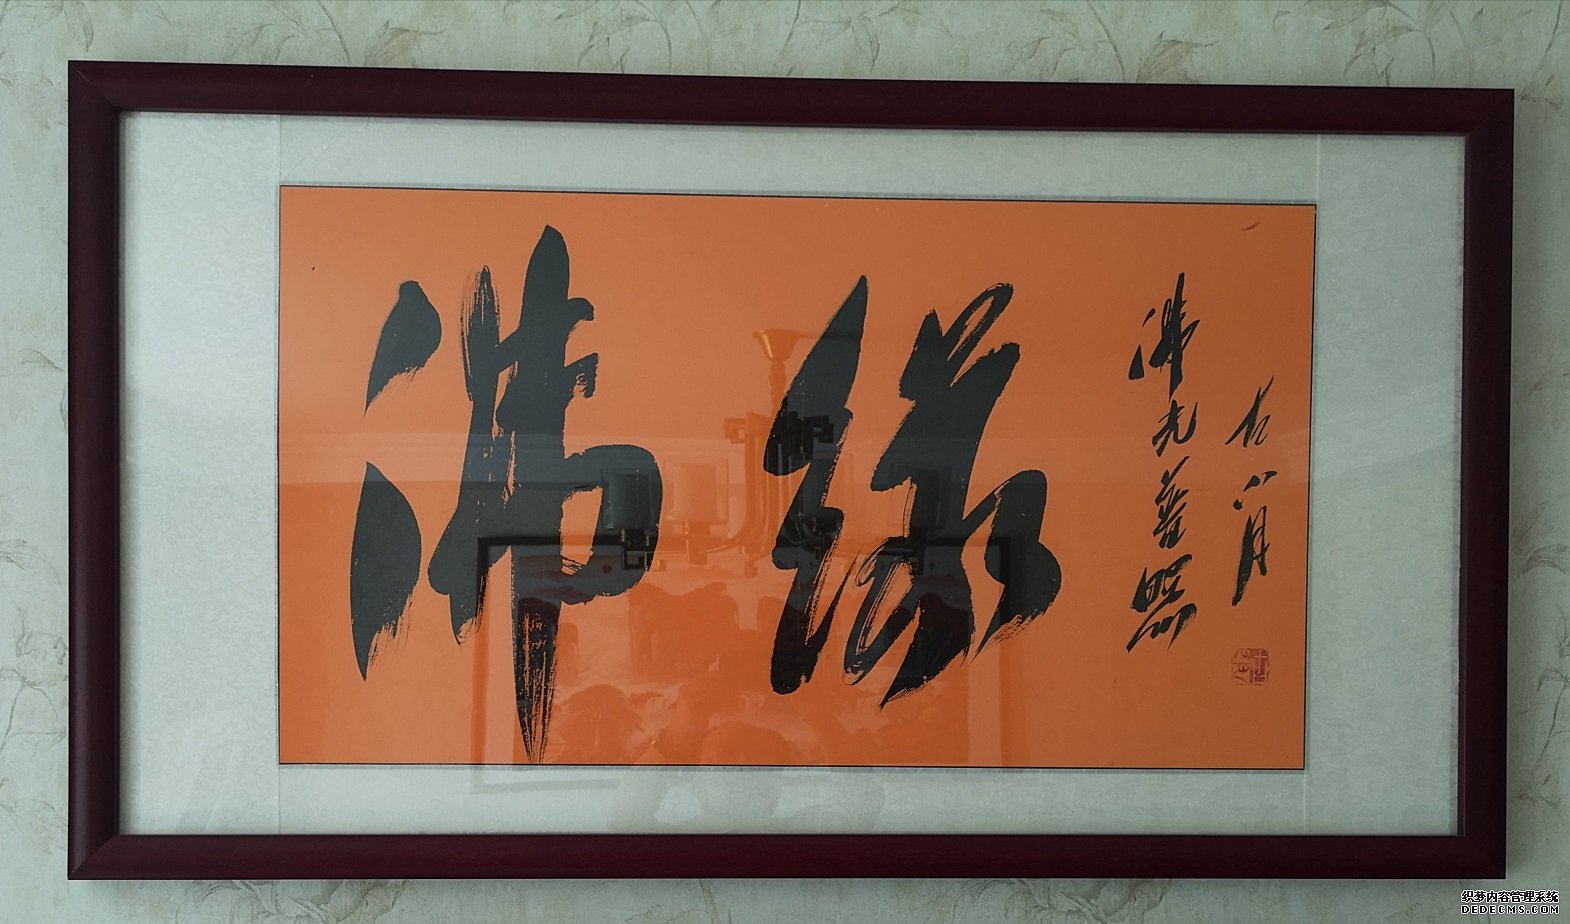 佛缘
佛光普照
织梦内容管理系统
DEDECMS.COM